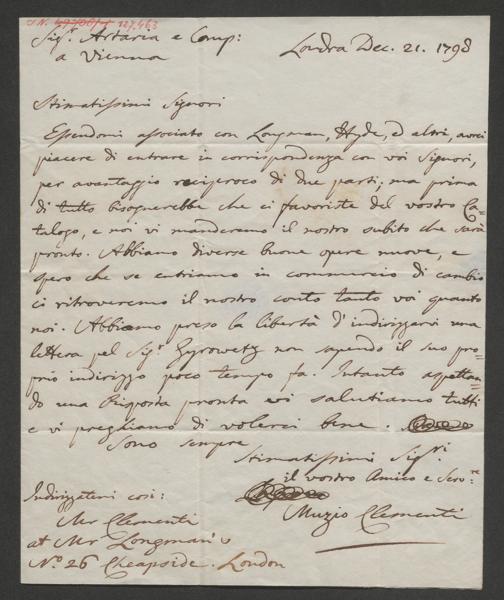 I.N. 127.463
Sig.ʳ Artaria e Comp:
a Vienna
Londra Dec. 21. 1798
Stimatissimi Signori
Essendomi associato con Longman, Hyde, ed altri, avrei
piacere di entrare in corrispondenza con voi Signori,
per avantaggio reciproco di due parti; ma prima
di tutto bisognerebbe che ci favoriste del vostro Ca=
talogo, e noi vi manderemo il nostro subito che sarà
pronto. Abbiamo diverse buone opere nuove, e
spero che se entriamo in commercio di cambio
ci ritroveremo il nostro conto tanto voi quanto
noi. Abbiamo preso la libertà d'indirizzarvi una
lettera pel Sig.ʳ Gyrowetz non sapendo il suo pro=
prio indirizzo poco tempo fa. Intanto aspettan=
do una Risposta pronta vi salutiamo tutti
e vi preghiamo di volerci bene.
Sono sempre
Stimatissimi Sig.ʳⁱ
il vostro Amico e Servʳᵉ
Muzio Clementi
Indirizzatemi così:
Mr Clementi
at Mr Longman's
N.º 26 Cheapside. London